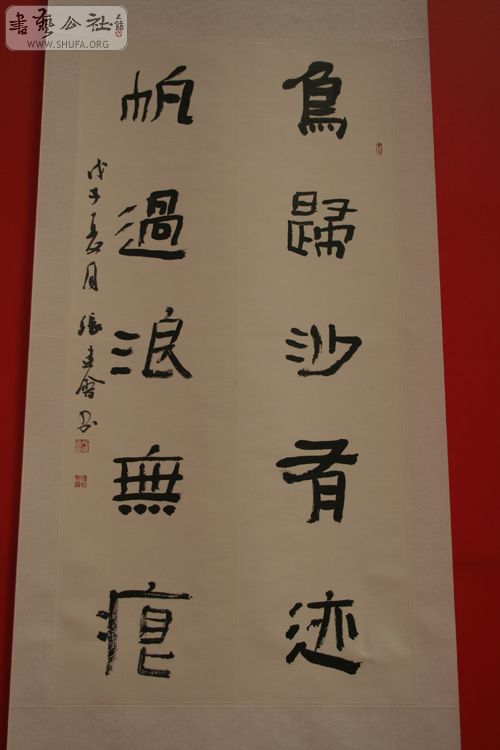 鳥歸沙有迹
帆過浪無痕
戊子夏月 張建會書
書藝公社
WWW.SHUFA.ORG